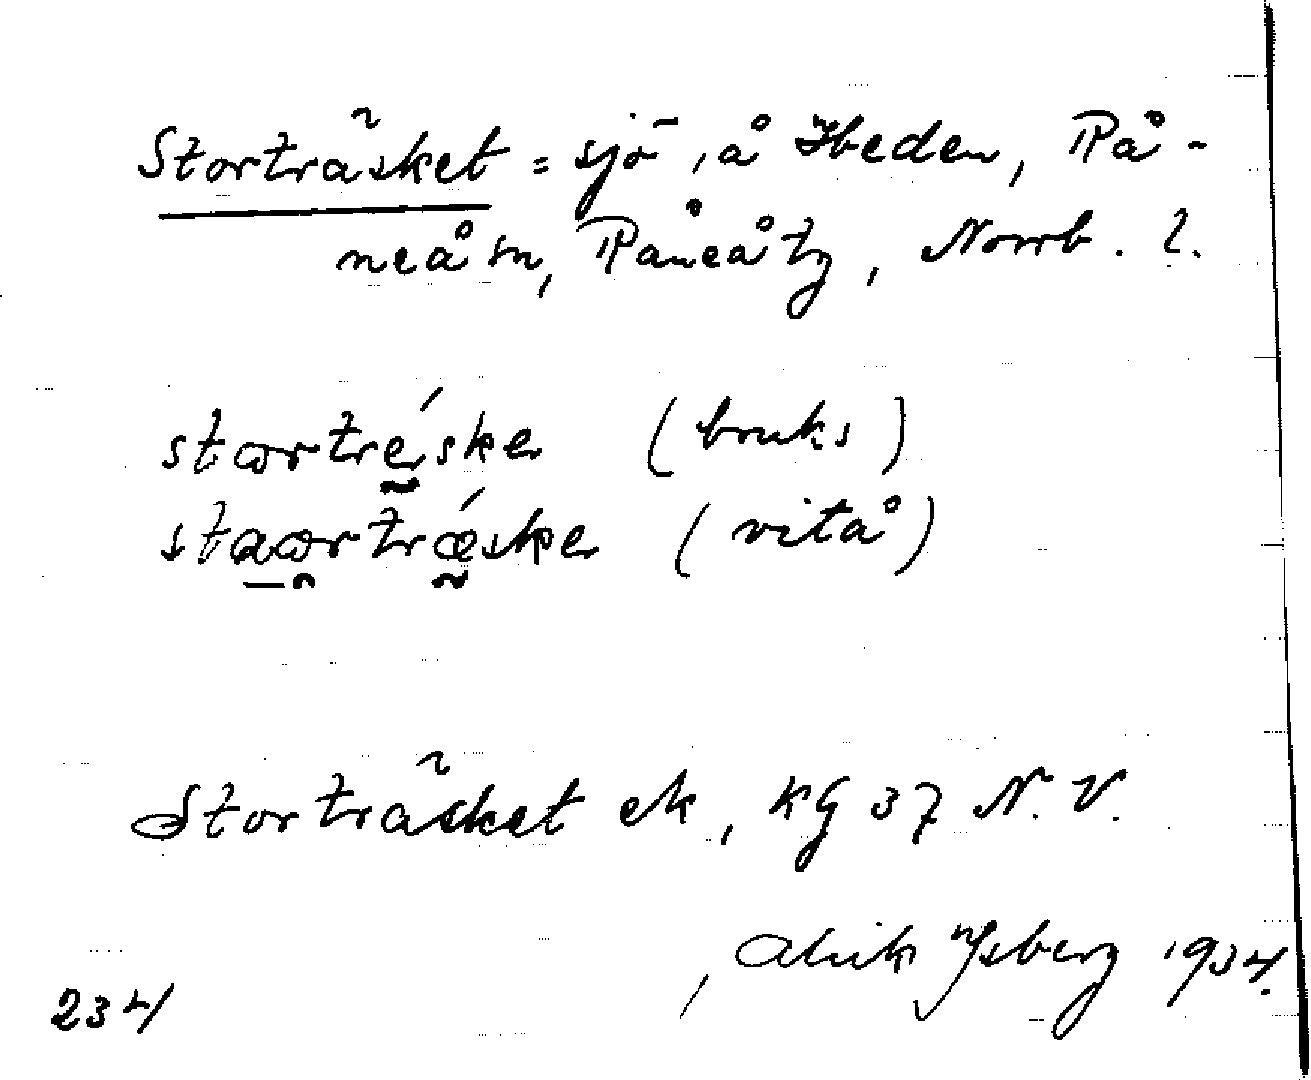 Storträsket = sjö, å Heden, Rå-
neå sn, Råneå tg, Norrb. l.
stortréske (bruks)
staortræ̃́ske (vitå)
Storträsket ek, kg 37 N.V.
Alrik Ysberg 1934.
234